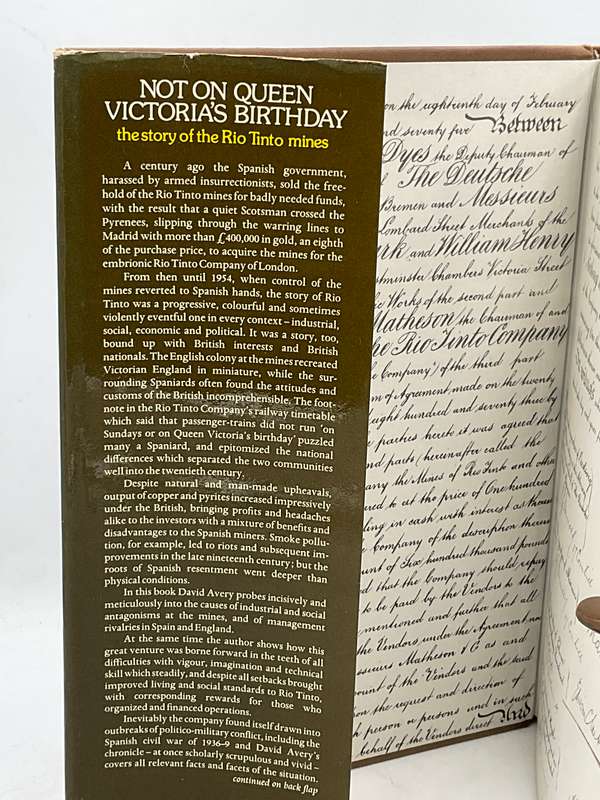 NOT ON QUEEN
VICTORIA'S BIRTHDAY
the story of the Rio Tinto mines
A century ago the Spanish government,
harassed by armed insurrectionists, sold the free-
hold of the Rio Tinto mines for badly needed funds,
with the result that a quiet Scotsman crossed the
Pyrenees, slipping through the warring lines to
Madrid with more than £400,000 in gold, an eighth
of the purchase price, to acquire the mines for the
embrionic Rio Tinto Company of London.
From then until 1954, when control of the
mines reverted to Spanish hands, the story of Rio
Tinto was a progressive, colourful and sometimes
violently eventful one in every context – industrial,
social, economic and political. It was a story, too,
bound up with British interests and British
nationals. The English colony at the mines recreated
Victorian England in miniature, while the sur-
rounding Spaniards often found the attitudes and
customs of the British incomprehensible. The foot-
note in the Rio Tinto Company's railway timetable
which said that passenger-trains did not run 'on
Sundays or on Queen Victoria's birthday' puzzled
many a Spaniard, and epitomized the national
differences which separated the two communities
well into the twentieth century.
Despite natural and man-made upheavals,
output of copper and pyrites increased impressively
under the British, bringing profits and headaches
alike to the investors with a mixture of benefits and
disadvantages to the Spanish miners. Smoke pollu-
tion, for example, led to riots and subsequent im-
provements in the late nineteenth century; but the
roots of Spanish resentment went deeper than
physical conditions.
In this book David Avery probes incisively and
meticulously into the causes of industrial and social
antagonisms at the mines, and of management
rivalries in Spain and England.
At the same time the author shows how this
great venture was borne forward in the teeth of all
difficulties with vigour, imagination and technical
skill which steadily, and despite all setbacks brought
improved living and social standards to Rio Tinto,
with corresponding rewards for those who
organized and financed operations.
Inevitably the company found itself drawn into
outbreaks of politico-military conflict, including the
Spanish civil war of 1936–9 and David Avery's
chronicle – at once scholarly scrupulous and vivid –
covers all relevant facts and facets of the situation.
continued on back flap
on the eighteenth day of February
nd seventy five Between
Dyes the Deputy Chairman of
The Deutsche
Bremen and Messieurs
Lombard Street Merchants of the
rk and William Henry
tminster Chambers Victoria Street
Works of the second part and
Matheson the Chairman of and
Rio Tinto Company
Company") of the third part
m of Agreement made on the twenty
eight hundred and seventy three by
parties hereto it was agreed that
nd parts (hereinafter called the
any the Mines of Rio Tinto and other
red to at the price of One hundred
ling in cash with interest as therein
Company of the description therein
unt of Six hundred thousand pounds
d that the Company should repay
to be paid by the Vendors to the
mentioned and further that all
the Vendors under the Agreement
ssieurs Matheson & Co as and
ount of the Vendors and the said
on the request and direction of
person or persons and in such
behalf of the Vendors direct And